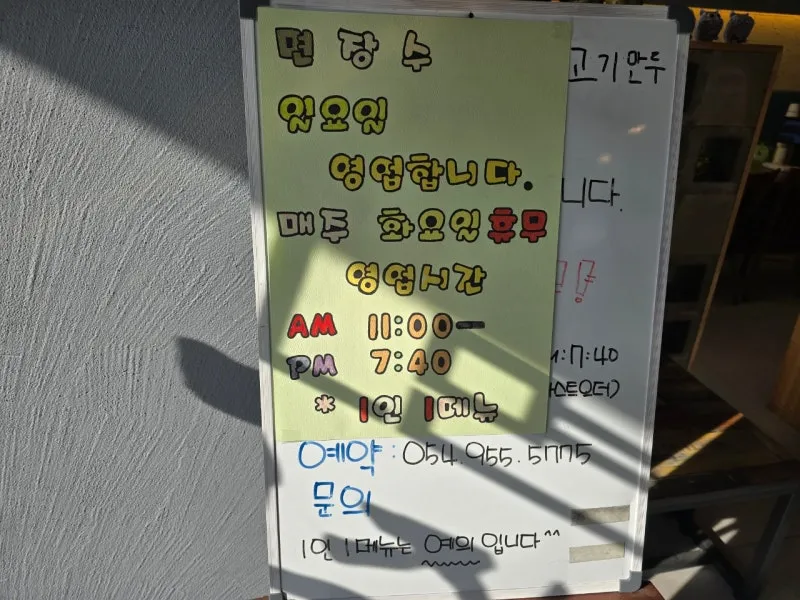 면 장 수
고기만두
일요일
영업합니다.
니다.
매주 화요일 휴무
영업시간
AM 11:00-
PM 7:40
:7:40
스트오더)
* 1인 1메뉴
예약 : 054.955.5775
문의
1인 1메뉴는 예의 입니다^^